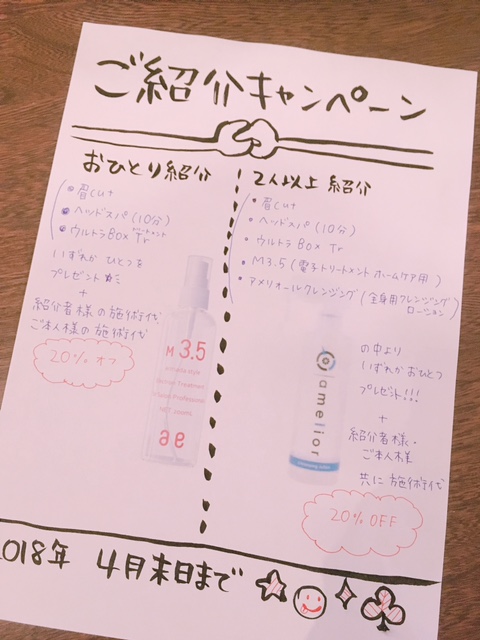 ご紹介キャンペーン
おひとり紹介
・眉cut
・ヘッドスパ(10分)
・ウルトラBOX Tr
トリートメント
いずれか ひとつを
プレゼント
+
紹介者様の施術代
ご本人様の施術代
20%オフ
M 3.5
NET 200mL
2人以上 紹介
・眉cut
・ヘッドスパ(10分)
・ウルトラBOX Tr
・M3.5(電子トリートメント ホームケア用)
・アメリオールクレンジング(全身用クレンジング
ローション)
amelior
の中より
いずれか おひとつ
プレゼント!!!
+
紹介者様・
ご本人様
共に施術代
20%OFF
2018年 4月末日まで